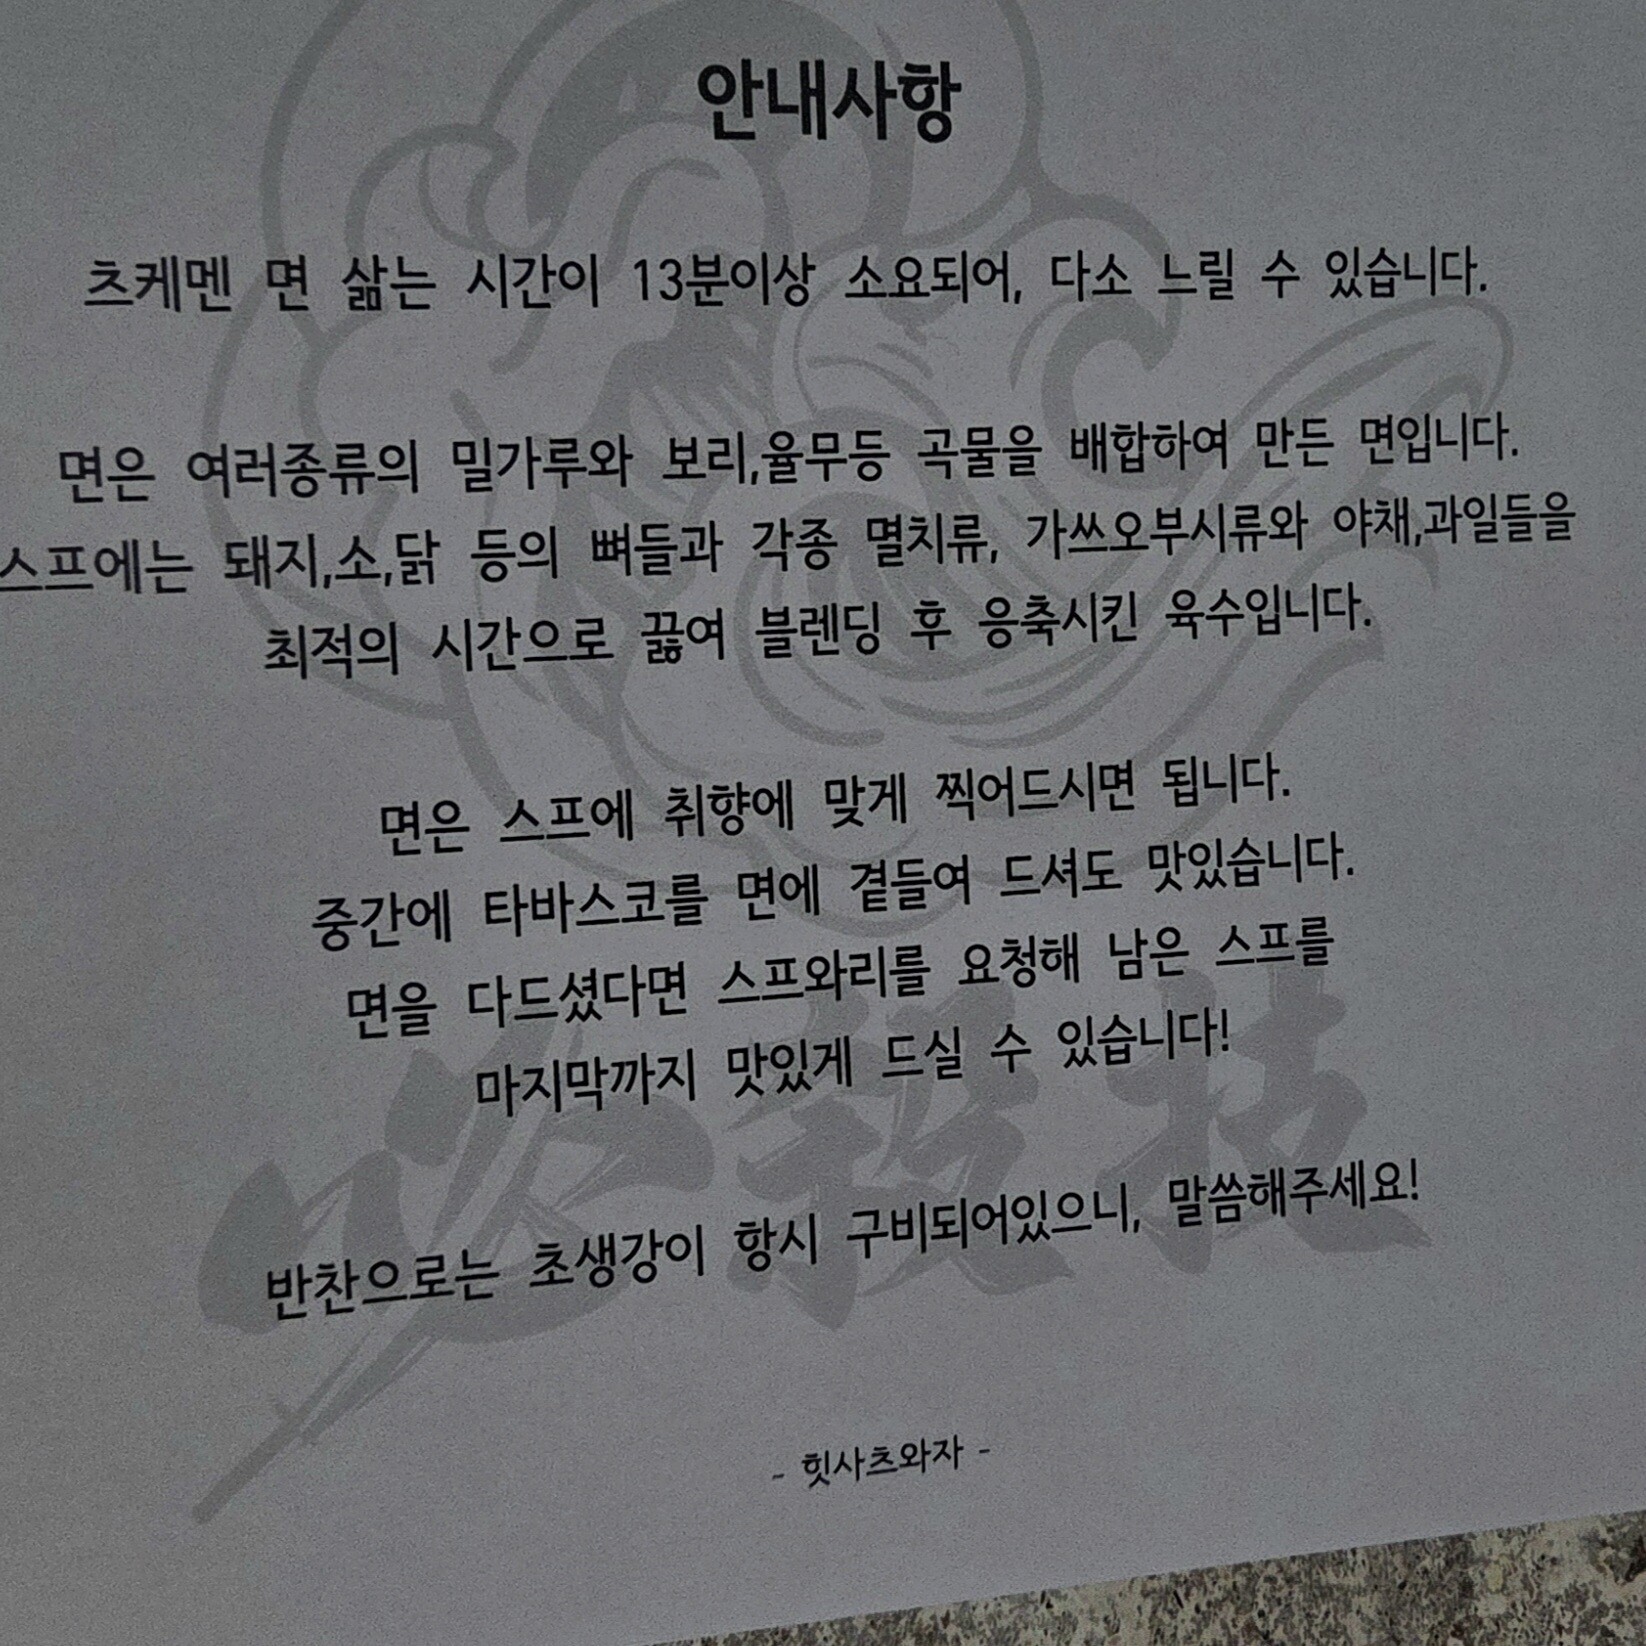 안내사항
츠케멘 면 삶는 시간이 13분이상 소요되어, 다소 느릴 수 있습니다.
면은 여러종류의 밀가루와 보리,율무등 곡물을 배합하여 만든 면입니다.
스프에는 돼지,소,닭 등의 뼈들과 각종 멸치류, 가쓰오부시류와 야채,과일들을
최적의 시간으로 끓여 블렌딩 후 응축시킨 육수입니다.
면은 스프에 취향에 맞게 찍어드시면 됩니다.
중간에 타바스코를 면에 곁들여 드셔도 맛있습니다.
면을 다드셨다면 스프와리를 요청해 남은 스프를
마지막까지 맛있게 드실 수 있습니다!
必殺技
반찬으로는 초생강이 항시 구비되어있으니, 말씀해주세요!
- 힛사츠와자 -